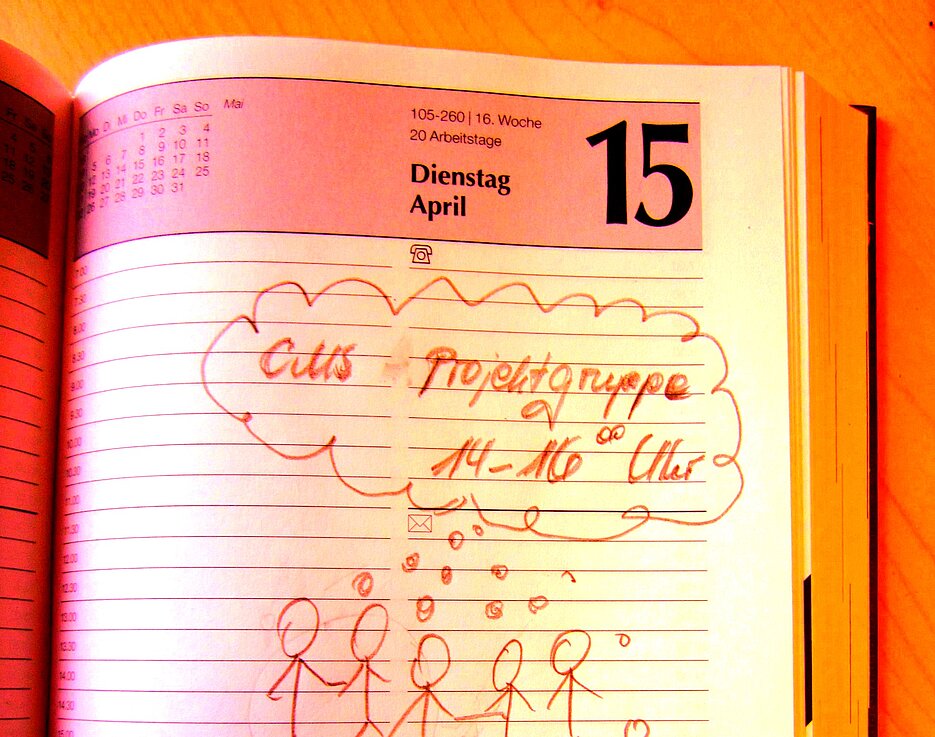 Mo Di Mi Do Fr Sa So Mai
1 2 3 4
5 6 7 8 9 10 11
12 13 14 15 16 17 18
19 20 21 22 23 24 25
26 27 28 29 30 31
105-260 | 16. Woche
20 Arbeitstage
Dienstag
April
15
7.00
7.30
8.00
8.30
9.00
9.30
10.00
10.30
11.00
11.30
12.00
12.30
13.00
13.30
14.00
14.30
CMS - Projektgruppe
14-16⁰⁰ Uhr